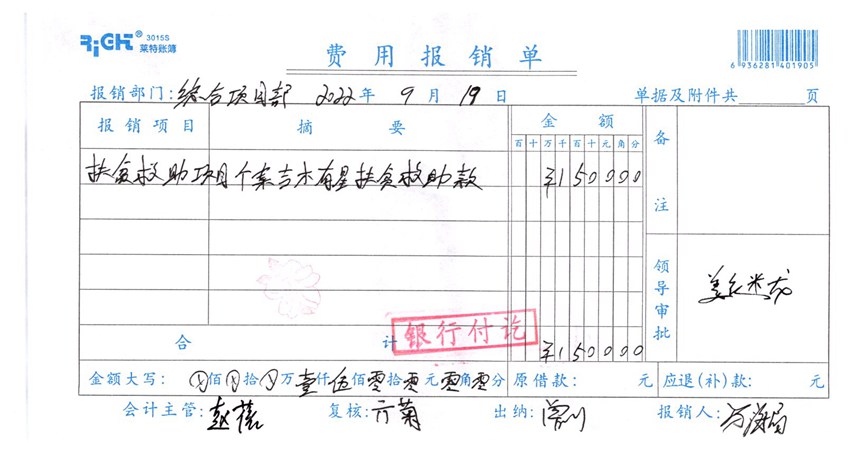 RiGHT® 3015S 莱特账簿
费用报销单
6 936281 401905
报销部门:综合项目部 2022年 9月 19日 单据及附件共 页
报销项目 摘要 金额 备注
百十万千百十元角分
扶贫救助项目个案吉木有星扶贫救助款 ¥150000
领导审批
银行付讫
合计 ¥150000
金额大写: 佰 拾 万壹仟伍佰零拾零元零角零分 原借款: 元 应退(补)款: 元
会计主管: 复核: 出纳: 报销人: